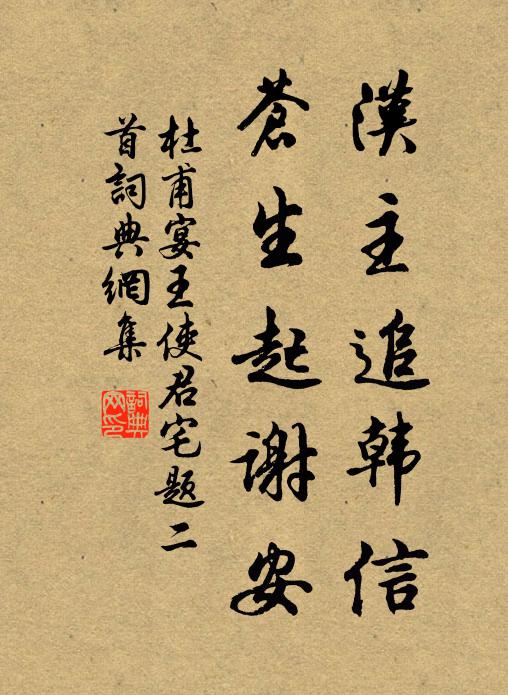 漢主追韩信
蒼生起谢安
杜甫宴王使君宅题二
首詞典網集
詞典
网印